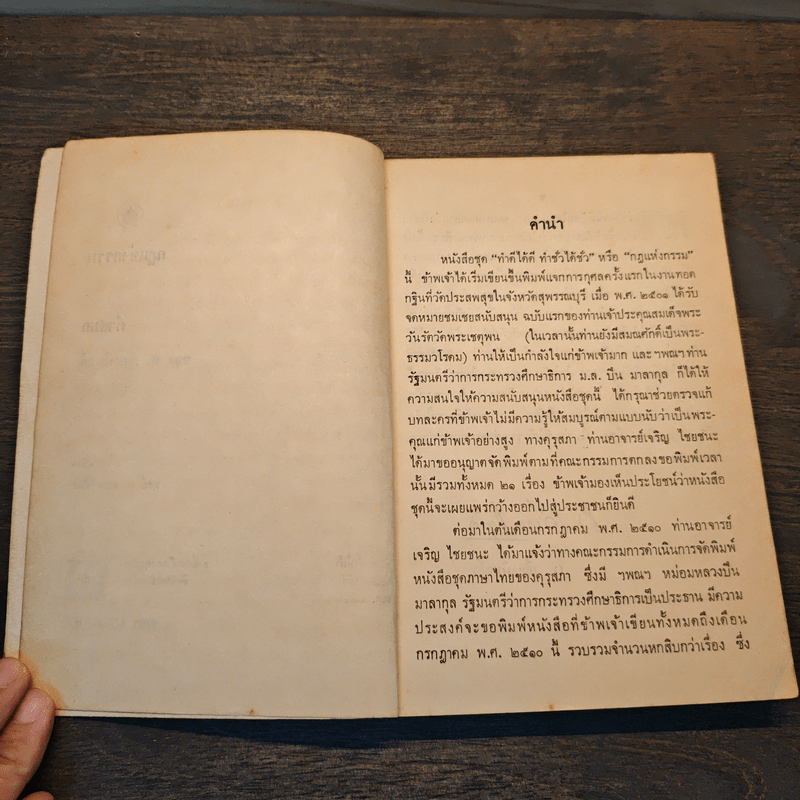 คำนำ
หนังสือชุด “ทำดีได้ดี ทำชั่วได้ชั่ว” หรือ “กฎแห่งกรรม”
นี้ ข้าพเจ้าได้เริ่มเขียนขึ้นพิมพ์แจกการกุศลครั้งแรกในงานทอด
กฐินที่วัดประสพสุขในจังหวัดสุพรรณบุรี เมื่อ พ.ศ. ๒๕๐๑ ได้รับ
จดหมายชมเชยสนับสนุน ฉบับแรกของท่านเจ้าประคุณสมเด็จพระ
วันรัตวัดพระเชตุพน (ในเวลานั้นท่านยังมีสมณศักดิ์เป็นพระ-
ธรรมวโรดม) ท่านให้เป็นกำลังใจแก่ข้าพเจ้ามาก และ ฯพณฯ ท่าน
รัฐมนตรีว่าการกระทรวงศึกษาธิการ ม.ล. ปิ่น มาลากุล ก็ได้ให้
ความสนใจให้ความสนับสนุนหนังสือชุดนี้ ได้กรุณาช่วยตรวจแก้
บทละครที่ข้าพเจ้าไม่มีความรู้ให้สมบูรณ์ตามแบบนับว่าเป็นพระ-
คุณแก่ข้าพเจ้าอย่างสูง ทางคุรุสภา ท่านอาจารย์เจริญ ไชยชนะ
ได้มาขออนุญาตจัดพิมพ์ตามที่คณะกรรมการตกลงขอพิมพ์เวลา
นั้นมีรวมทั้งหมด ๒๑ เรื่อง ข้าพเจ้ามองเห็นประโยชน์ว่าหนังสือ
ชุดนี้จะเผยแพร่กว้างออกไปสู่ประชาชนก็ยินดี
ต่อมาในต้นเดือนกรกฎาคม พ.ศ. ๒๕๑๐ ท่านอาจารย์
เจริญ ไชยชนะ ได้มาแจ้งว่าทางคณะกรรมการดำเนินการจัดพิมพ์
หนังสือชุดภาษาไทยของคุรุสภา ซึ่งมี ฯพณฯ หม่อมหลวงปิ่น
มาลากุล รัฐมนตรีว่าการกระทรวงศึกษาธิการเป็นประธาน มีความ
ประสงค์จะขอพิมพ์หนังสือที่ข้าพเจ้าเขียนทั้งหมดถึงเดือน
กรกฎาคม พ.ศ. ๒๕๑๐ นี้ รวบรวมจำนวนหกสิบกว่าเรื่อง ซึ่ง